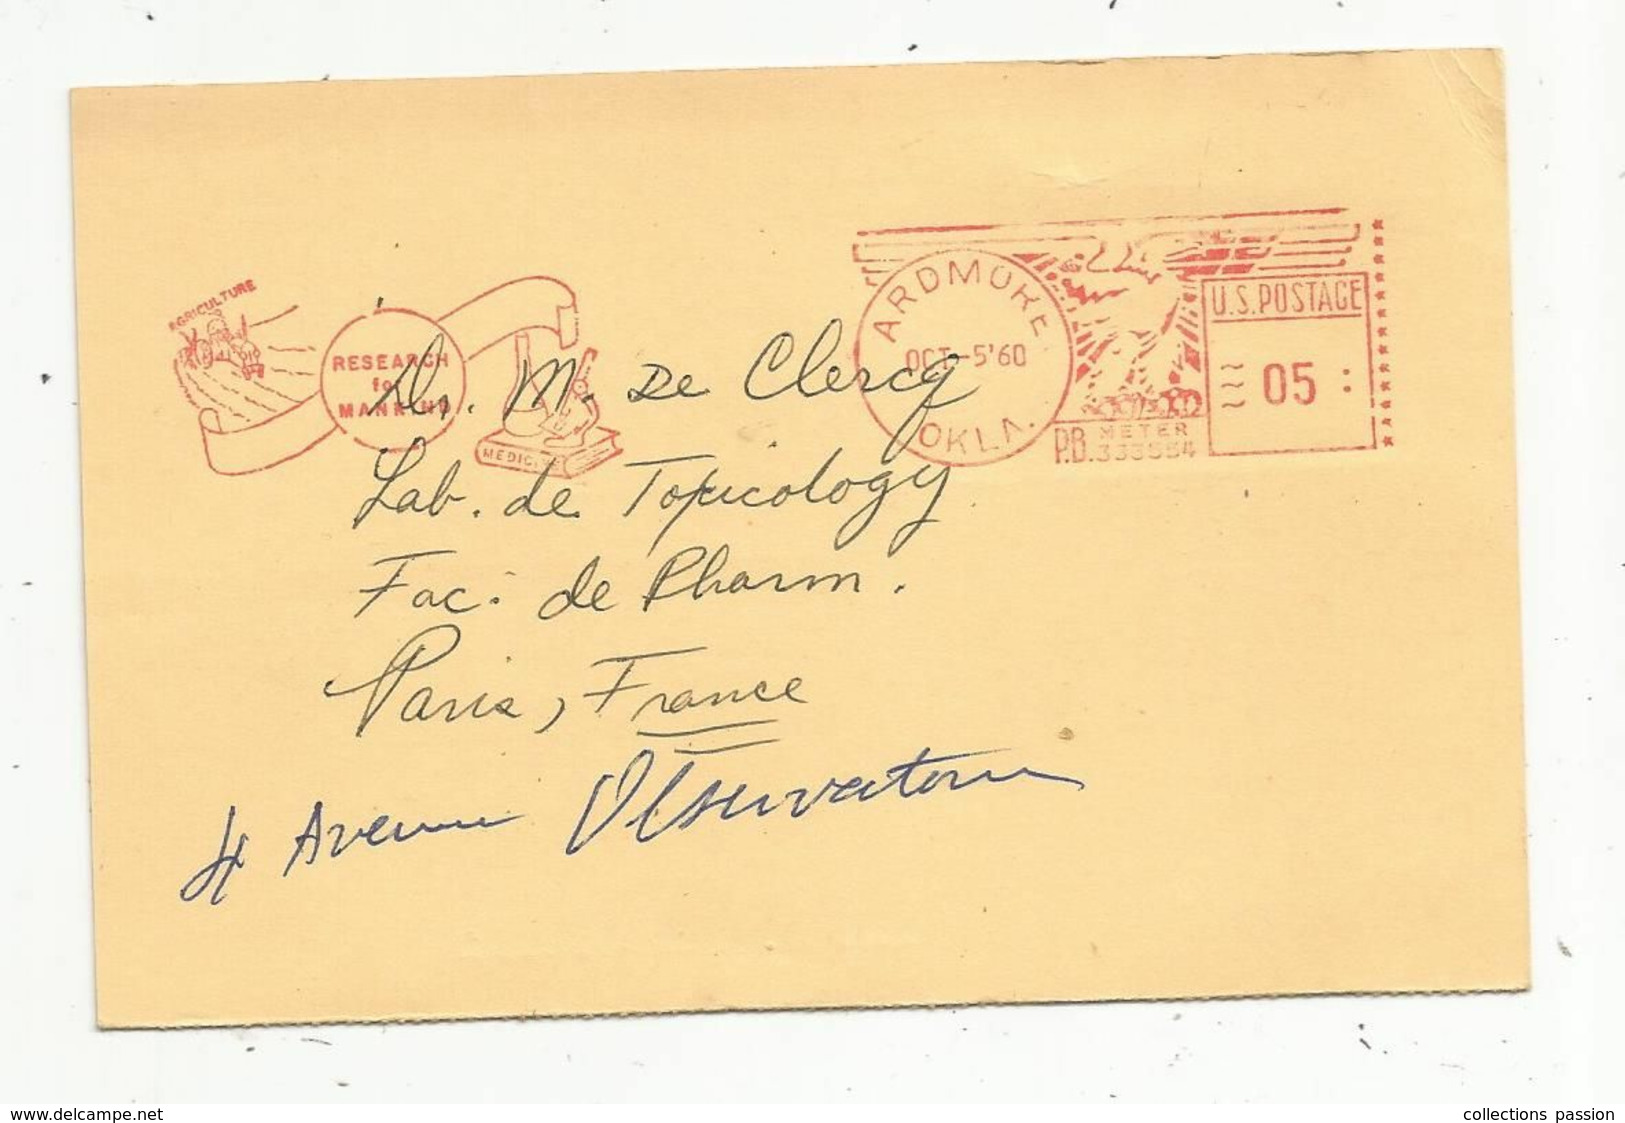 AGRICULTURE
RESEARCH
for
MANKIND
MEDICINE
ARDMORE
OCT-5'60
OKLA.
U.S.POSTAGE
05
P.B. METER
Dr. M. De Clercq
Lab. de Toxicology
Fac. de Pharm.
Paris, France
4 Avenue Observatoire
www.delcampe.net
collections passion